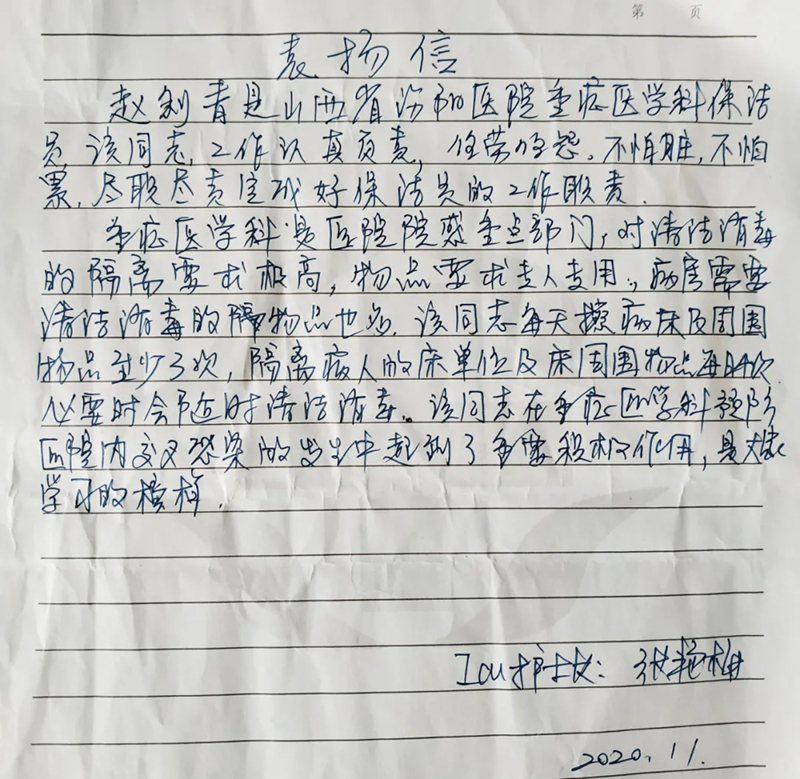 第 页
表扬信
赵剑青是山西省汾阳医院重症医学科保洁
员,该同志,工作认真负责,任劳任怨。不怕脏,不怕
累,尽职尽责完成好保洁员的工作职责.
重症医学科是医院院感重点部门,对清洁消毒
的隔离要求极高,物品要求专人专用.,病房需要
清洁消毒的物品也多.该同志每天擦病床及周围
物品至少3次,隔离病人的床单位及床周围物品每日4次
必要时会随时清洁消毒。该同志在重症医学科预防
医院内交叉感染的发生中起到了重要积极作用,是大家
学习的榜样.
Icu护士长: 张艳梅
2020.11.